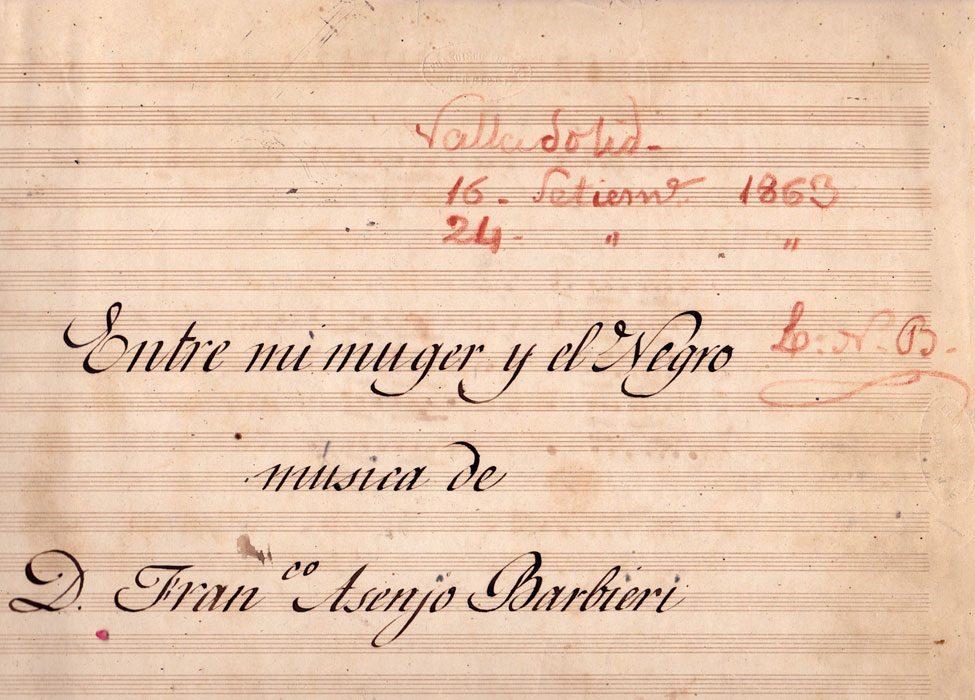 Valladolid-
16 - Setiemᵉ 1863
24 - " "
Entre mi muger y el Negro
L. N. B.
musica de
D. Franᶜᵒ Asenjo Barbieri